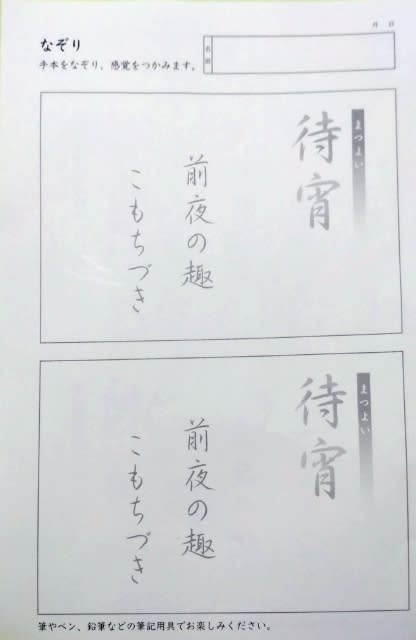 月 日
なぞり
手本をなぞり、感覚をつかみます。
名前
まつよい
待宵
前夜の趣
こもちづき
まつよい
待宵
前夜の趣
こもちづき
筆やペン、鉛筆などの筆記用具でお楽しみください。